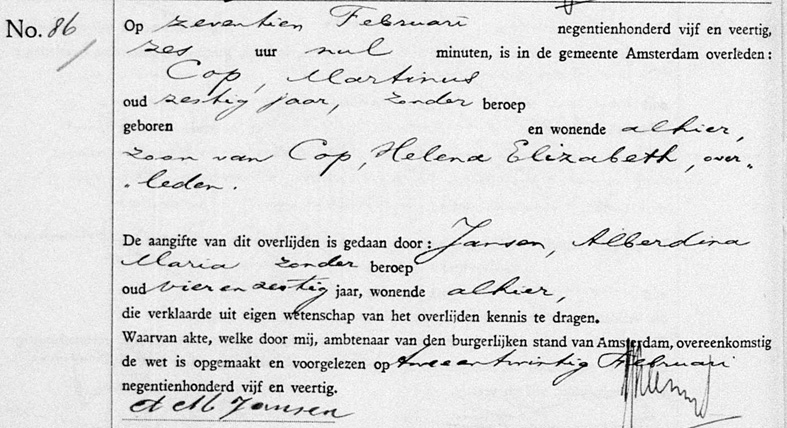 No. 86
Op zeventien Februari negentienhonderd vijf en veertig,
zes uur nul minuten, is in de gemeente Amsterdam overleden:
Cop, Martinus
oud zestig jaar, zonder beroep
geboren en wonende alhier,
zoon van Cop, Helena Elizabeth, over-
leden.
De aangifte van dit overlijden is gedaan door: Jansen, Alberdina
Maria zonder beroep
oud vier en zestig jaar, wonende alhier,
die verklaarde uit eigen wetenschap van het overlijden kennis te dragen.
Waarvan akte, welke door mij, ambtenaar van den burgerlijken stand van Amsterdam, overeenkomstig
de wet is opgemaakt en voorgelezen op twee en twintig Februari
negentienhonderd vijf en veertig.
A M Jansen